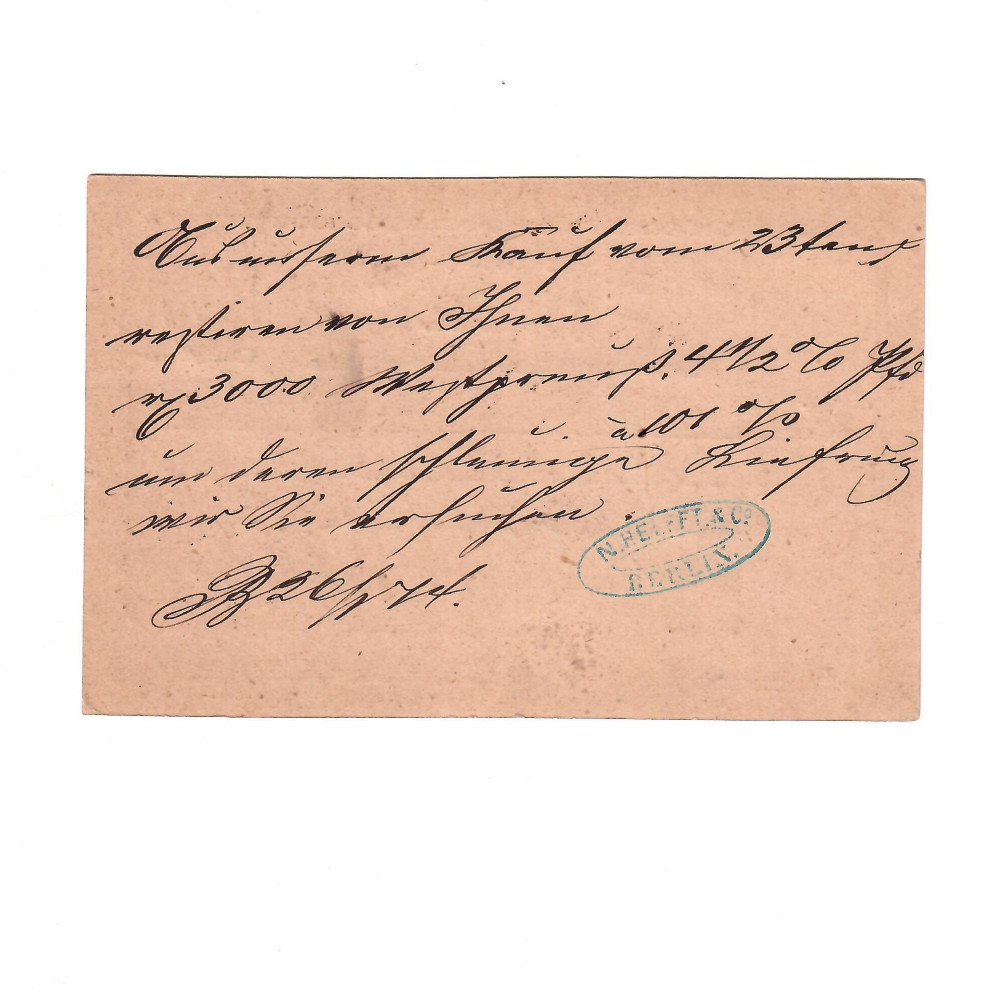 Aus unserm Kauf vom 23ten
restiren von Ihnen
3000 Westpreuß. 4 1/2 % Pfd
à 101 %
um deren schleunige Liefrung
wir Sie ersuchen.
N. HELFFT & Co
BERLIN.
B 26/ 74.